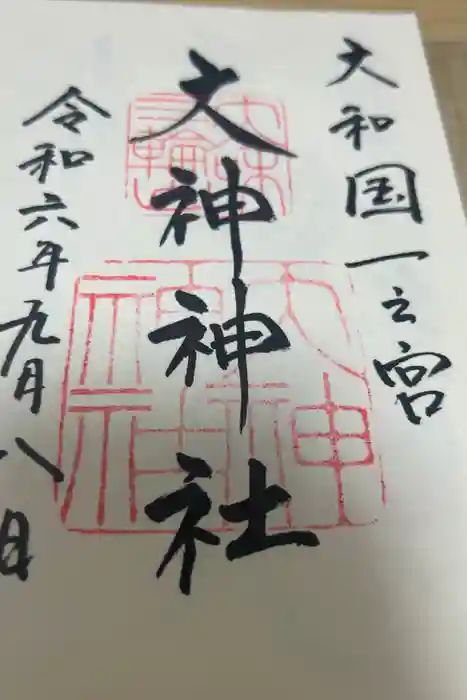 大和国一之宮
大神神社
令和六年九月八日
大和
三輪山
大神
神社